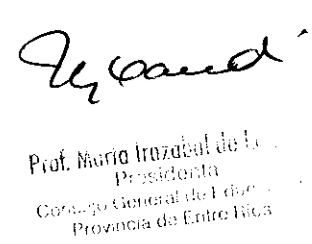 Prof. María Irazabal de
Presidenta
Consejo General de Educ
Provincia de Entre Ríos